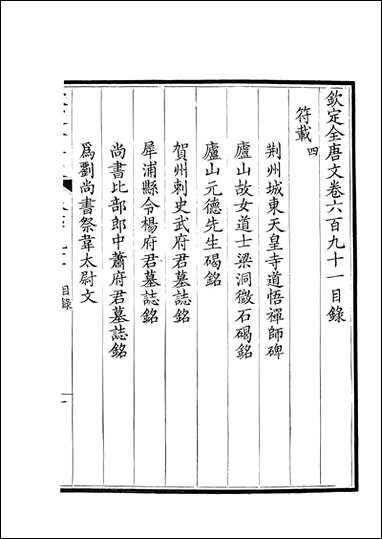 欽定全唐文卷六百九十一目錄
符載 四
荆州城東天皇寺道悟禪師碑
廬山故女道士梁洞微石碣銘
廬山元德先生碣銘
賀州刺史武府君墓誌銘
犀浦縣令楊府君墓誌銘
尚書比部郎中蕭府君墓誌銘
爲劉尚書祭韋太尉文
目錄
一